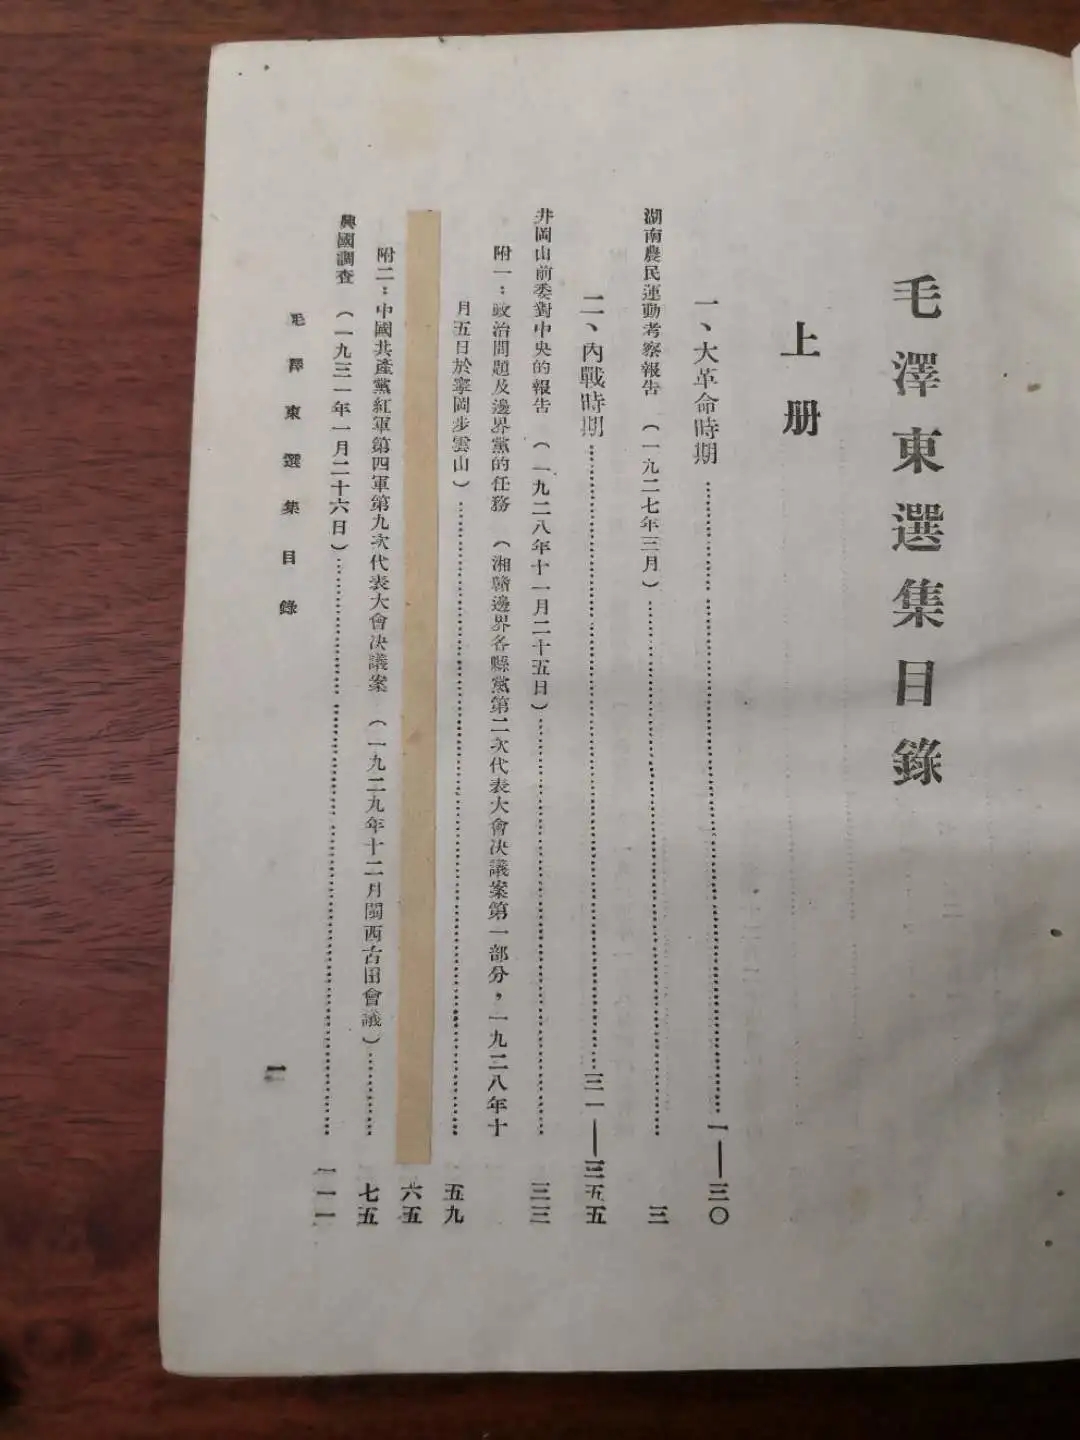 毛澤東選集目錄
上册
一、大革命時期……一——三〇
湖南農民運動考察報告（一九二七年三月）……三
二、內戰時期……三一——三五五
井岡山前委對中央的報告（一九二八年十一月二十五日）……三三
附一：政治問題及邊界黨的任務（湘贛邊界各縣黨第二次代表大會决議案第一部分，一九二八年十
月五日於寧岡步雲山）……五九
六五
附二：中國共產黨紅軍第四軍第九次代表大會决議案（一九二九年十二月閩西古田會議）……七五
興國調查（一九三一年一月二十六日）……一一一
毛澤東選集目錄
一